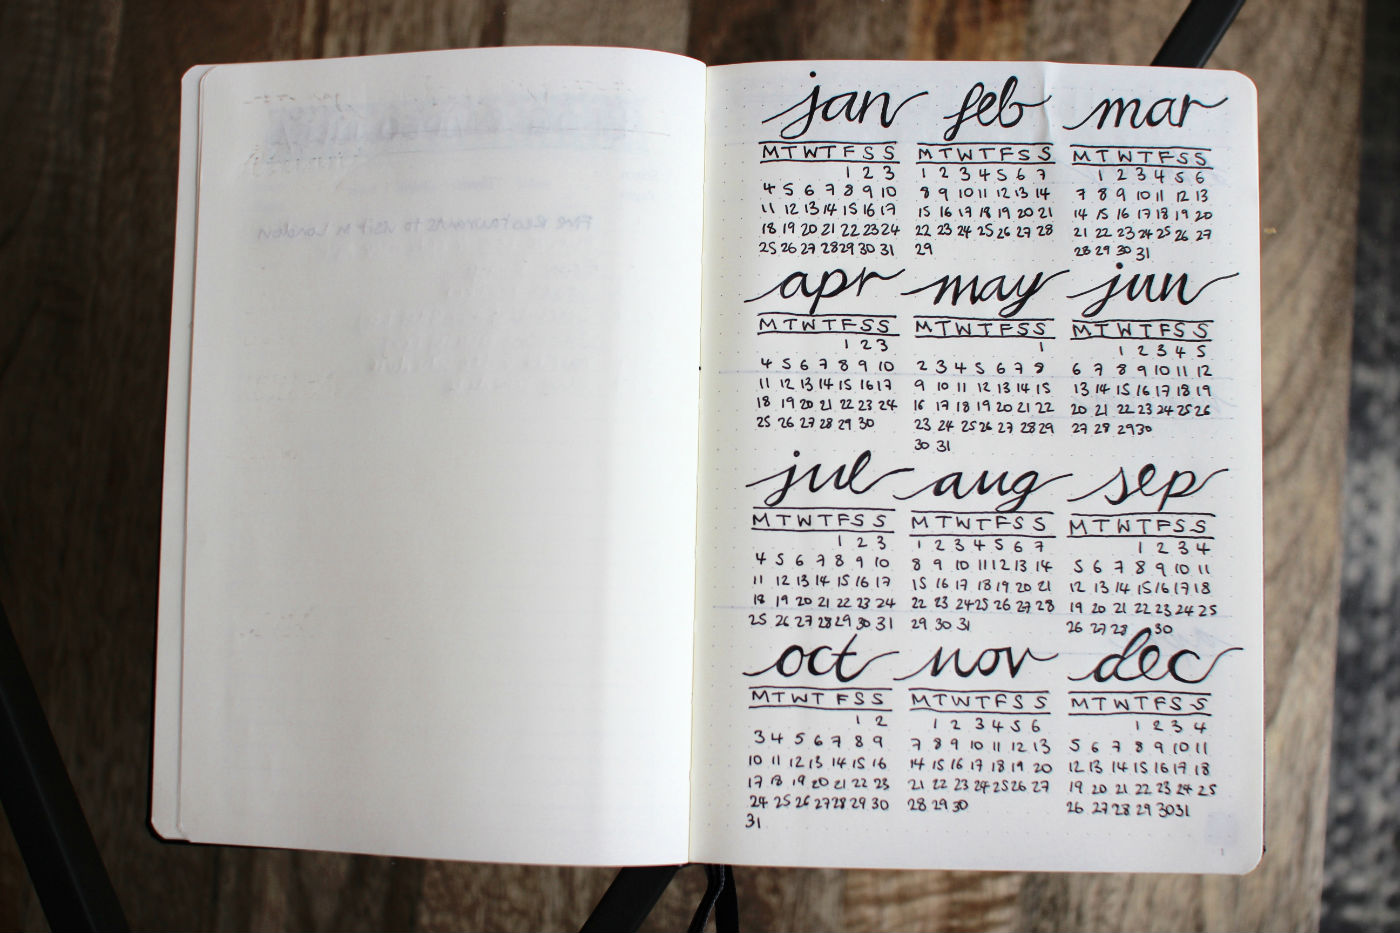 Restaurants to visit in London
jan
M T W T F S S
1 2 3
4 5 6 7 8 9 10
11 12 13 14 15 16 17
18 19 20 21 22 23 24
25 26 27 28 29 30 31
feb
M T W T F S S
1 2 3 4 5 6 7
8 9 10 11 12 13 14
15 16 17 18 19 20 21
22 23 24 25 26 27 28
29
mar
M T W T F S S
1 2 3 4 5 6
7 8 9 10 11 12 13
14 15 16 17 18 19 20
21 22 23 24 25 26 27
28 29 30 31
apr
M T W T F S S
1 2 3
4 5 6 7 8 9 10
11 12 13 14 15 16 17
18 19 20 21 22 23 24
25 26 27 28 29 30
may
M T W T F S S
1
2 3 4 5 6 7 8
9 10 11 12 13 14 15
16 17 18 19 20 21 22
23 24 25 26 27 28 29
30 31
jun
M T W T F S S
1 2 3 4 5
6 7 8 9 10 11 12
13 14 15 16 17 18 19
20 21 22 23 24 25 26
27 28 29 30
jul
M T W T F S S
1 2 3
4 5 6 7 8 9 10
11 12 13 14 15 16 17
18 19 20 21 22 23 24
25 26 27 28 29 30 31
aug
M T W T F S S
1 2 3 4 5 6 7
8 9 10 11 12 13 14
15 16 17 18 19 20 21
22 23 24 25 26 27 28
29 30 31
sep
M T W T F S S
1 2 3 4
5 6 7 8 9 10 11
12 13 14 15 16 17 18
19 20 21 22 23 24 25
26 27 28 30
oct
M T W T F S S
1 2
3 4 5 6 7 8 9
10 11 12 13 14 15 16
17 18 19 20 21 22 23
24 25 26 27 28 29 30
31
nov
M T W T F S S
1 2 3 4 5 6
7 8 9 10 11 12 13
14 15 16 17 18 19 20
21 22 23 24 25 26 27
28 29 30
dec
M T W T F S S
1 2 3 4
5 6 7 8 9 10 11
12 13 14 15 16 17 18
19 20 21 22 23 24 25
26 27 28 29 30 31
1